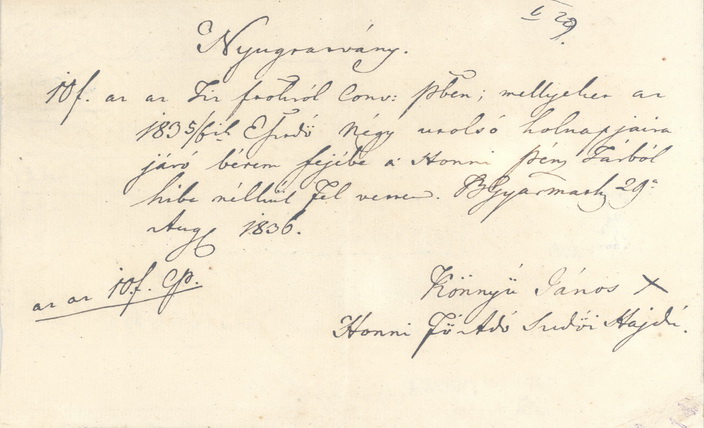 V 29.
Nyugtatvány.
10f. az az Tiz frokról Conv: Pben; mellyeket az
1835/6ik Esztdő Négy utolsó holnapjaira
járó bérem fejébe a Honni Pénz Tárból
hiba nélkül fel vettem. BGyarmath 29a
Aug 1836.
az az 10f. Cp.
Könnyü János X
Honni Fő Adó Szedői Hajdú.